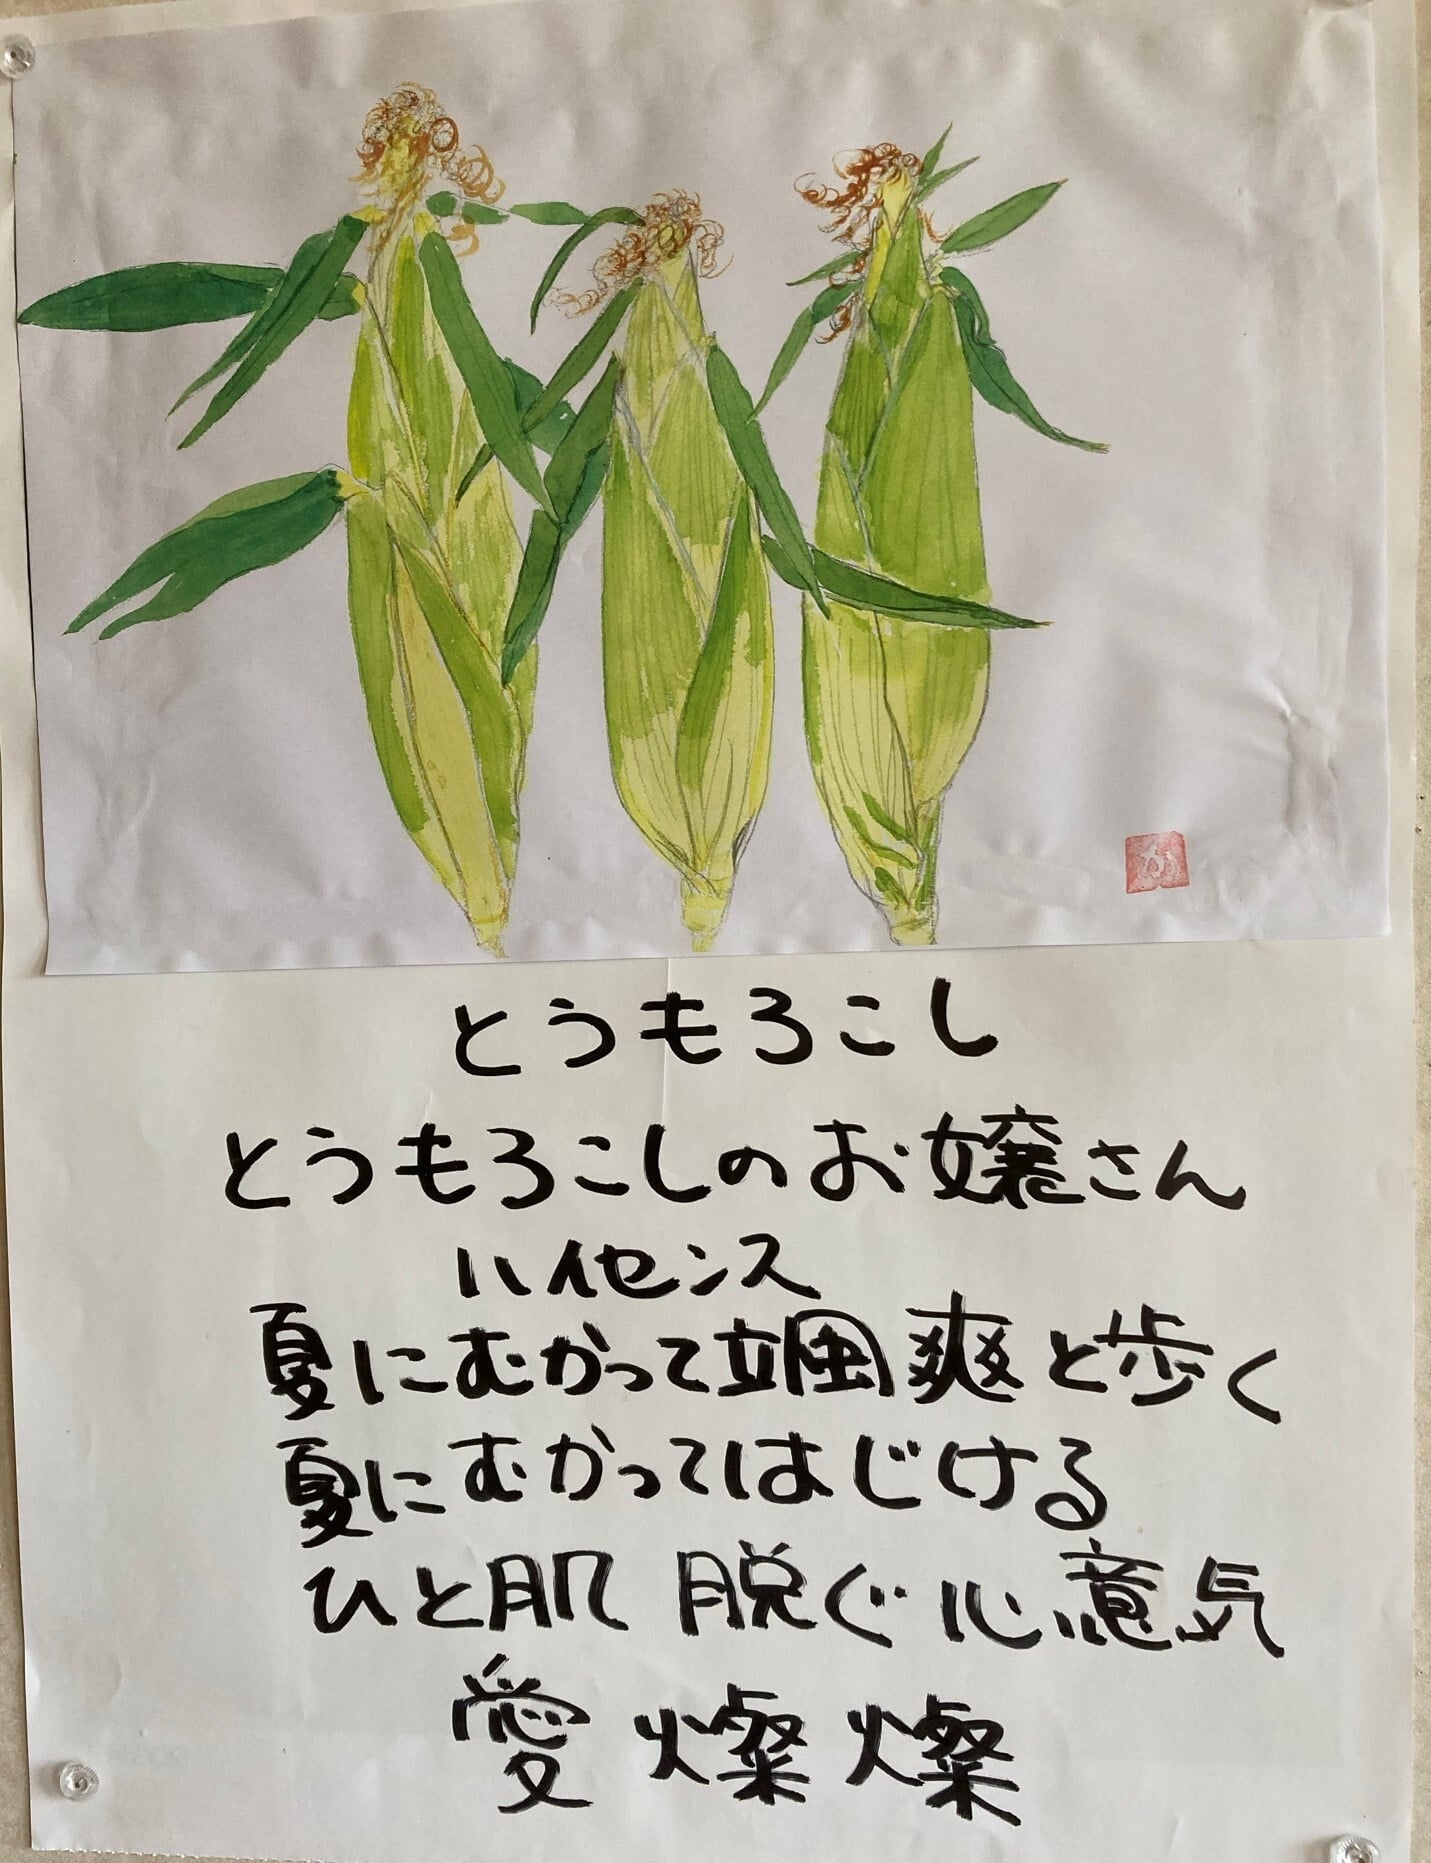 か
とうもろこし
とうもろこしのお嬢さん
ハイセンス
夏にむかって颯爽と歩く
夏にむかってはじける
ひと肌 脱ぐ心意気
愛 燦燦